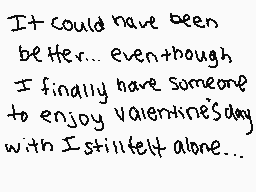 It could have been
better... eventhough
I finally have someone
to enjoy valentine's day
with I still felt alone...